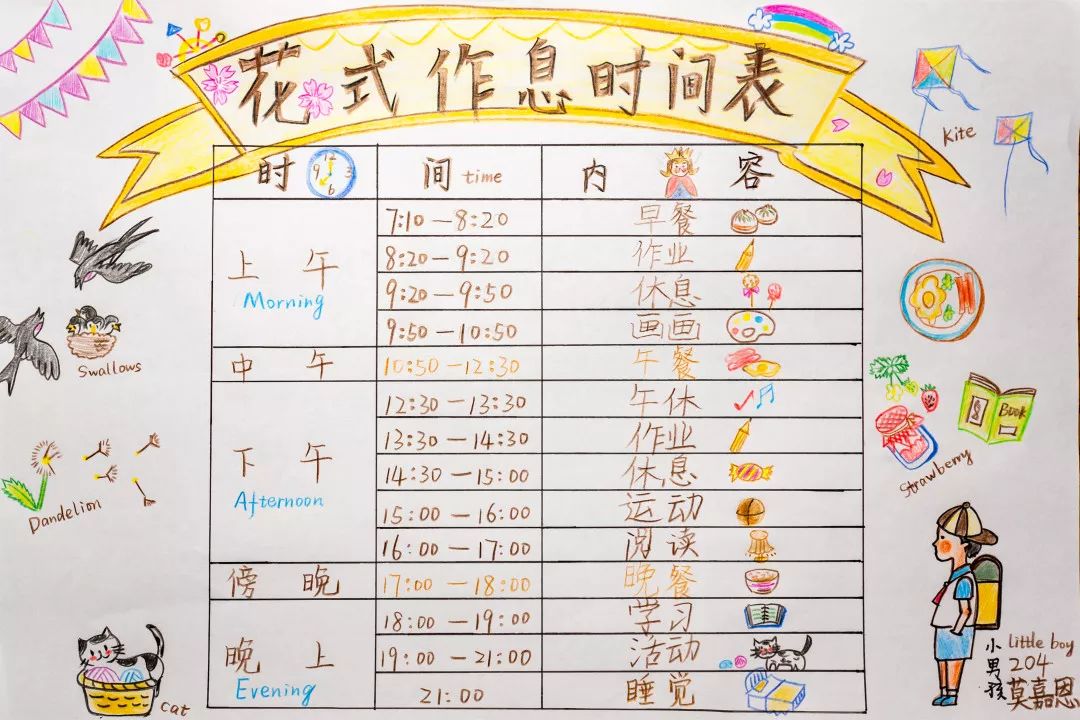 花式作息时间表
Kite
12
9 3
6
时 间 time 内 容
7:10—8:20 早餐
8:20—9:20 作业
上午 9:20—9:50 休息
Morning
9:50—10:50 画画
中午 10:50—12:30 午餐
12:30—13:30 午休
13:30—14:30 作业
下午 14:30—15:00 休息
Afternoon
15:00—16:00 运动
16:00—17:00 阅读
傍晚 17:00—18:00 晚餐
18:00—19:00 学习
晚上 19:00—21:00 活动
Evening 21:00 睡觉
Swallows
Dandelion
Cat
BOOK
Strawberry
小男孩
little boy
204
莫嘉恩